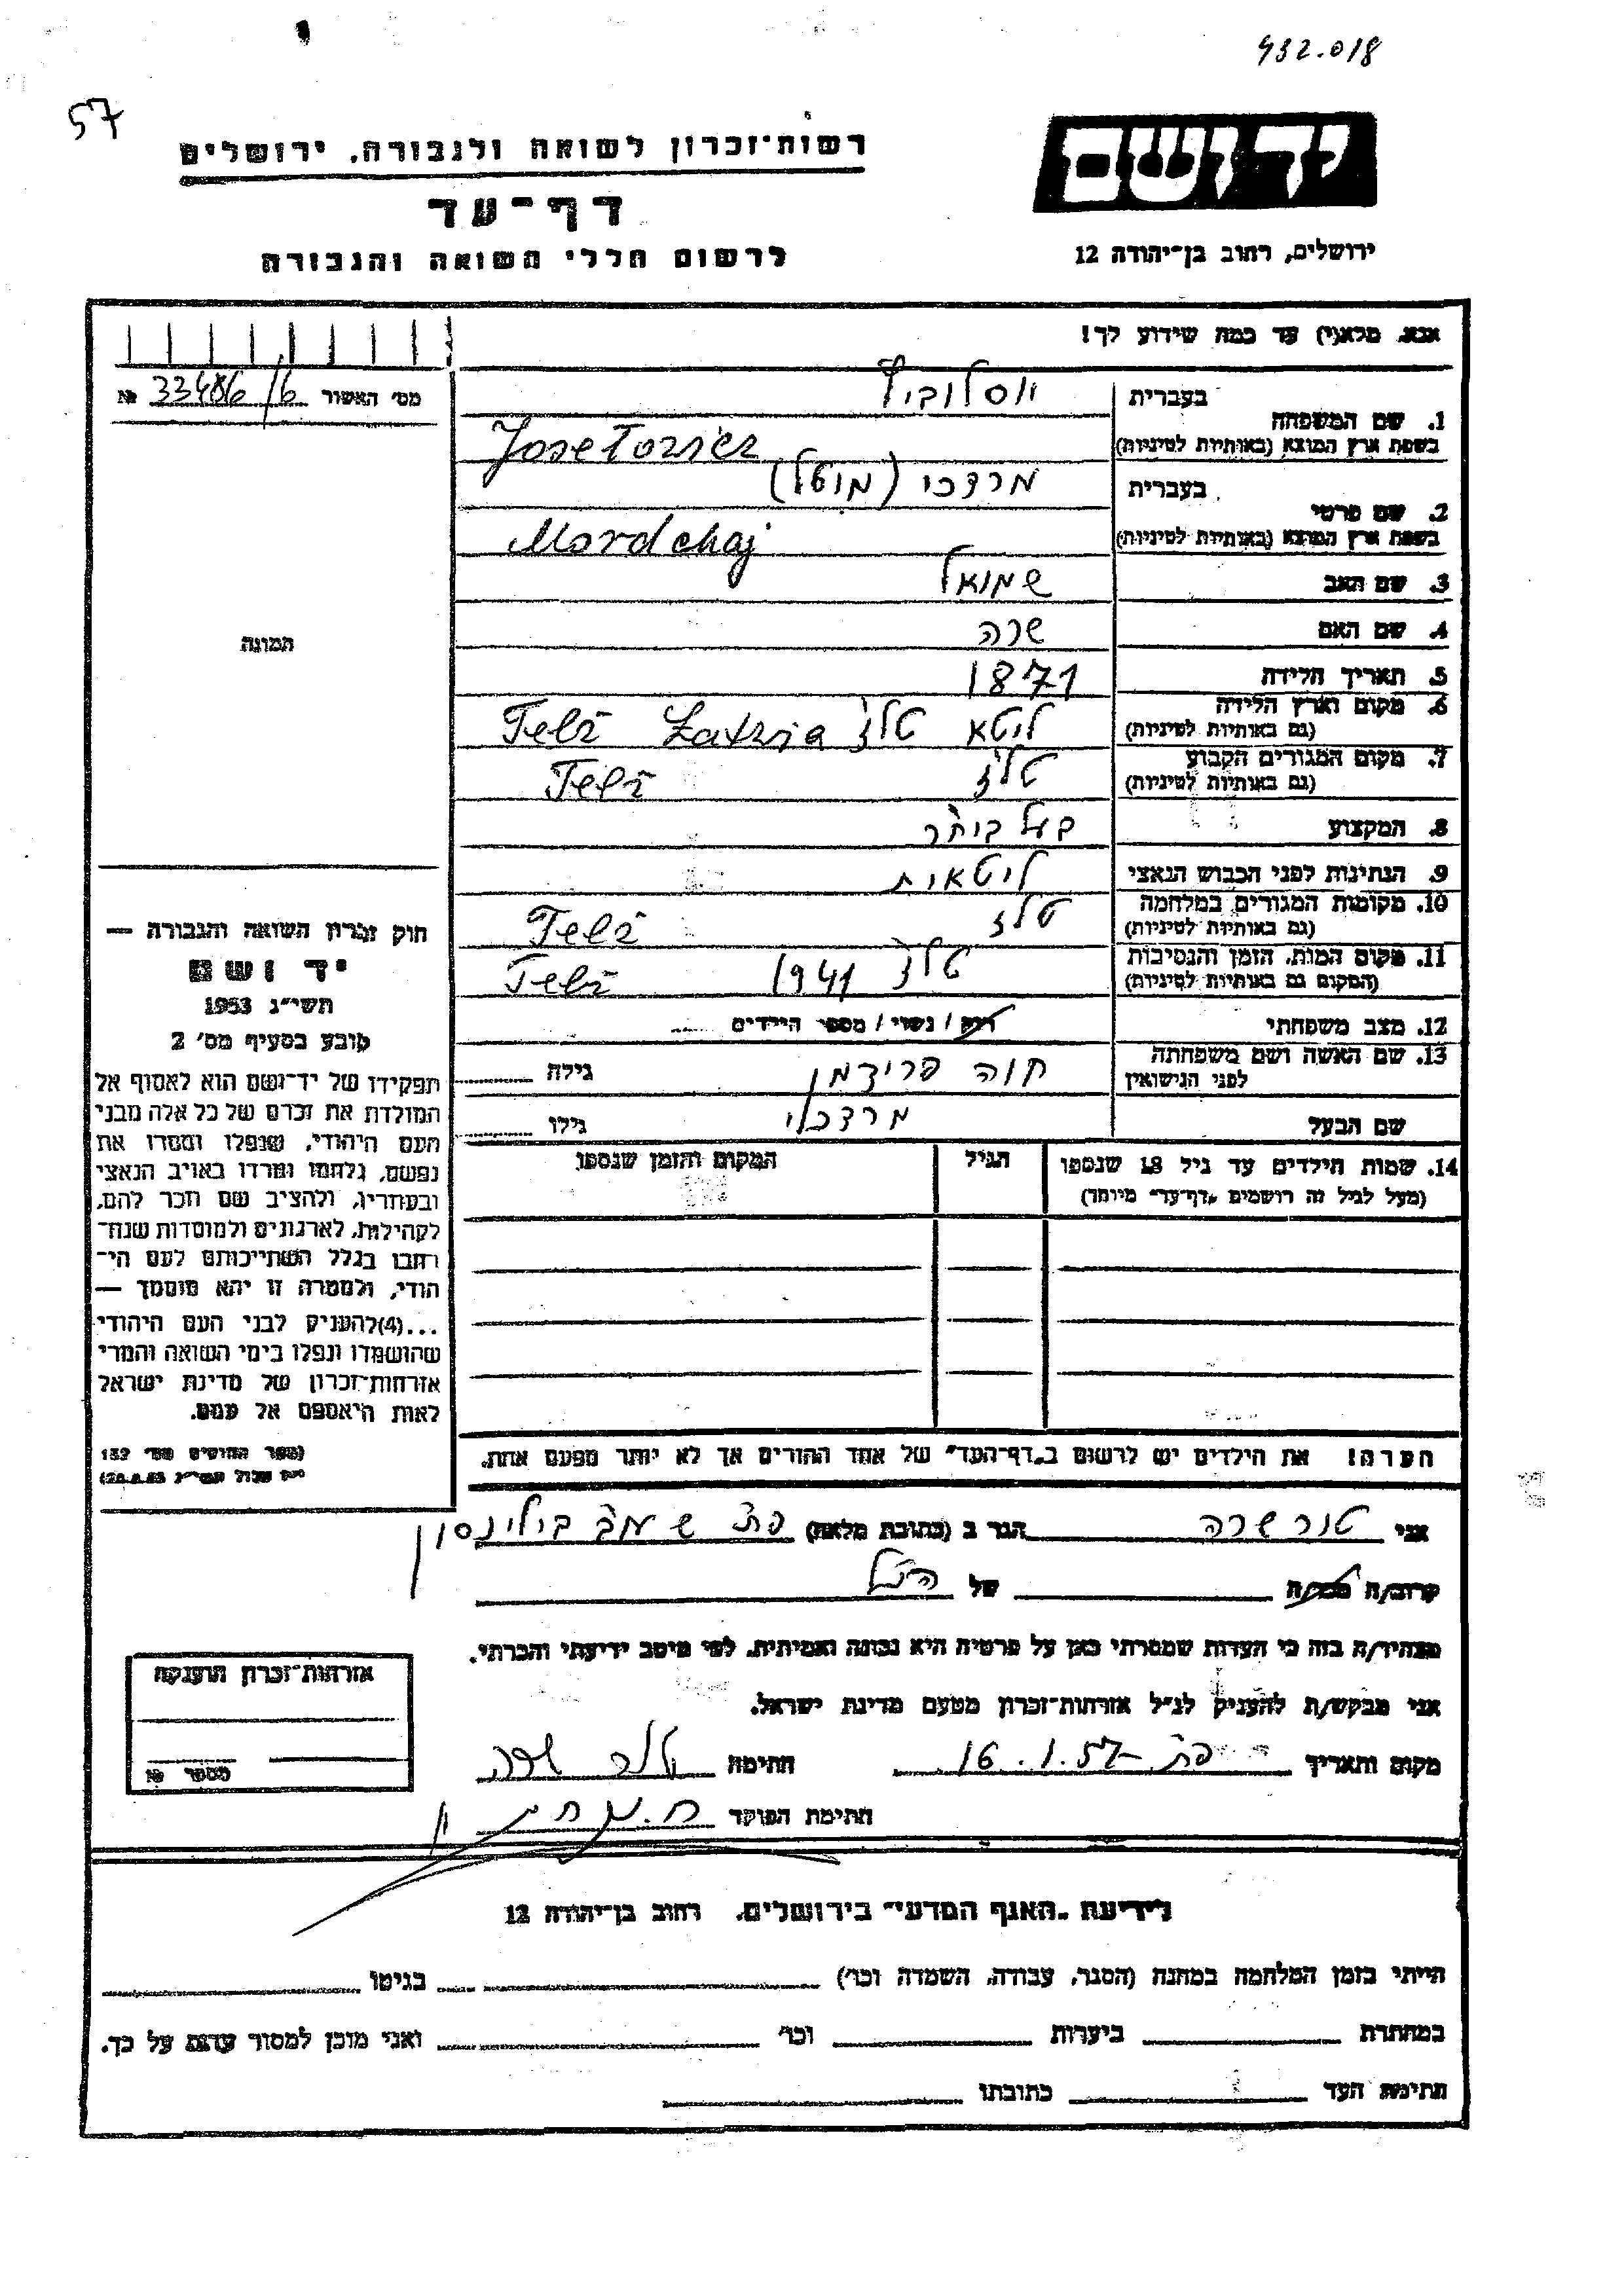 432.018
57
יד ושם
ירושלים, רחוב בן־יהודה 12
רשות־זכרון לשואה ולגבורה, ירושלים
דף־עד
לרשום חללי השואה והגבורה
אנא, מלא(י) עד כמה שידוע לך!
מס׳ האשור 33486/6 №
1. שם המשפחה
בעברית
בשפת ארץ המוצא (באותיות לטיניות)
2. שם פרטי
בעברית מרדכי (מוטל)
בשפת ארץ המוצא (באותיות לטיניות) Mordchaj
3. שם האב שמואל
4. שם האם שרה
5. תאריך הלידה 1871
6. מקום וארץ הלידה ליטא טלז
(גם באותיות לטיניות) Telž
7. מקום המגורים הקבוע טלז
(גם באותיות לטיניות) Telž
8. המקצוע
9. הנתינות לפני הכבוש הנאצי ליטאית
10. מקומות המגורים במלחמה טלז
(גם באותיות לטיניות) Telž
11. מקום המות, הזמן והנסיבות טלז 1941
(המקום גם באותיות לטיניות) Telž
12. מצב משפחתי רווק / נשוי / מספר הילדים
13. שם האשה ושם משפחתה
לפני הנישואין חוה פרידמן גילה
שם הבעל מרדכי גילו
14. שמות הילדים עד גיל 18 שנספו
(מעל לגיל זה רושמים „דף־עד" מיוחד)
הגיל
המקום והזמן שנספו
הערה! את הילדים יש לרשום ב„דף־העד" של אחד ההורים אך לא יותר מפעם אחת.
התמונה
חוק זכרון השואה והגבורה —
יד ושם
תשי״ג 1953
קובע בסעיף מס׳ 2
תפקידו של יד־ושם הוא לאסוף אל
המולדת את זכרם של כל אלה מבני
העם היהודי, שנפלו ומסרו את
נפשם, נלחמו ומרדו באויב הנאצי
ובעוזריו, ולהציב שם וזכר להם,
לקהילות, לארגונים ולמוסדות שנח־
רבו בגלל השתייכותם לעם הי־
הודי, ולמטרה זו יהא מוסמך —
...(4) להעניק לבני העם היהודי
שהושמדו ונפלו בימי השואה והמרי
אזרחות־זכרון של מדינת ישראל
לאות היאספם אל עמם.
(ספר החוקים מס׳ 132
אני שרה הגר ב (כתובת מלאה) פת
קרוב/ה מכר/ה של הנ״ל
מצהיר/ה בזה כי העדות שמסרתי כאן על פרטיה היא נכונה ואמיתית, לפי מיטב ידיעתי והכרתי.
אני מבקש/ת להעניק לנ״ל אזרחות־זכרון מטעם מדינת ישראל.
מקום ותאריך פת 16.1.57 חתימה שרה
חתימת הפוקד
אזרחות־זכרון הוענקה
מספר №
לידיעת „האגף המדעי" בירושלים, רחוב בן־יהודה 12
הייתי בזמן המלחמה במחנה (הסגר, עבודה, השמדה וכו׳) בגיטו
במחתרת ביערות וכו׳ ואני מוכן למסור עדות על כך.
חתימת העד כתובתו